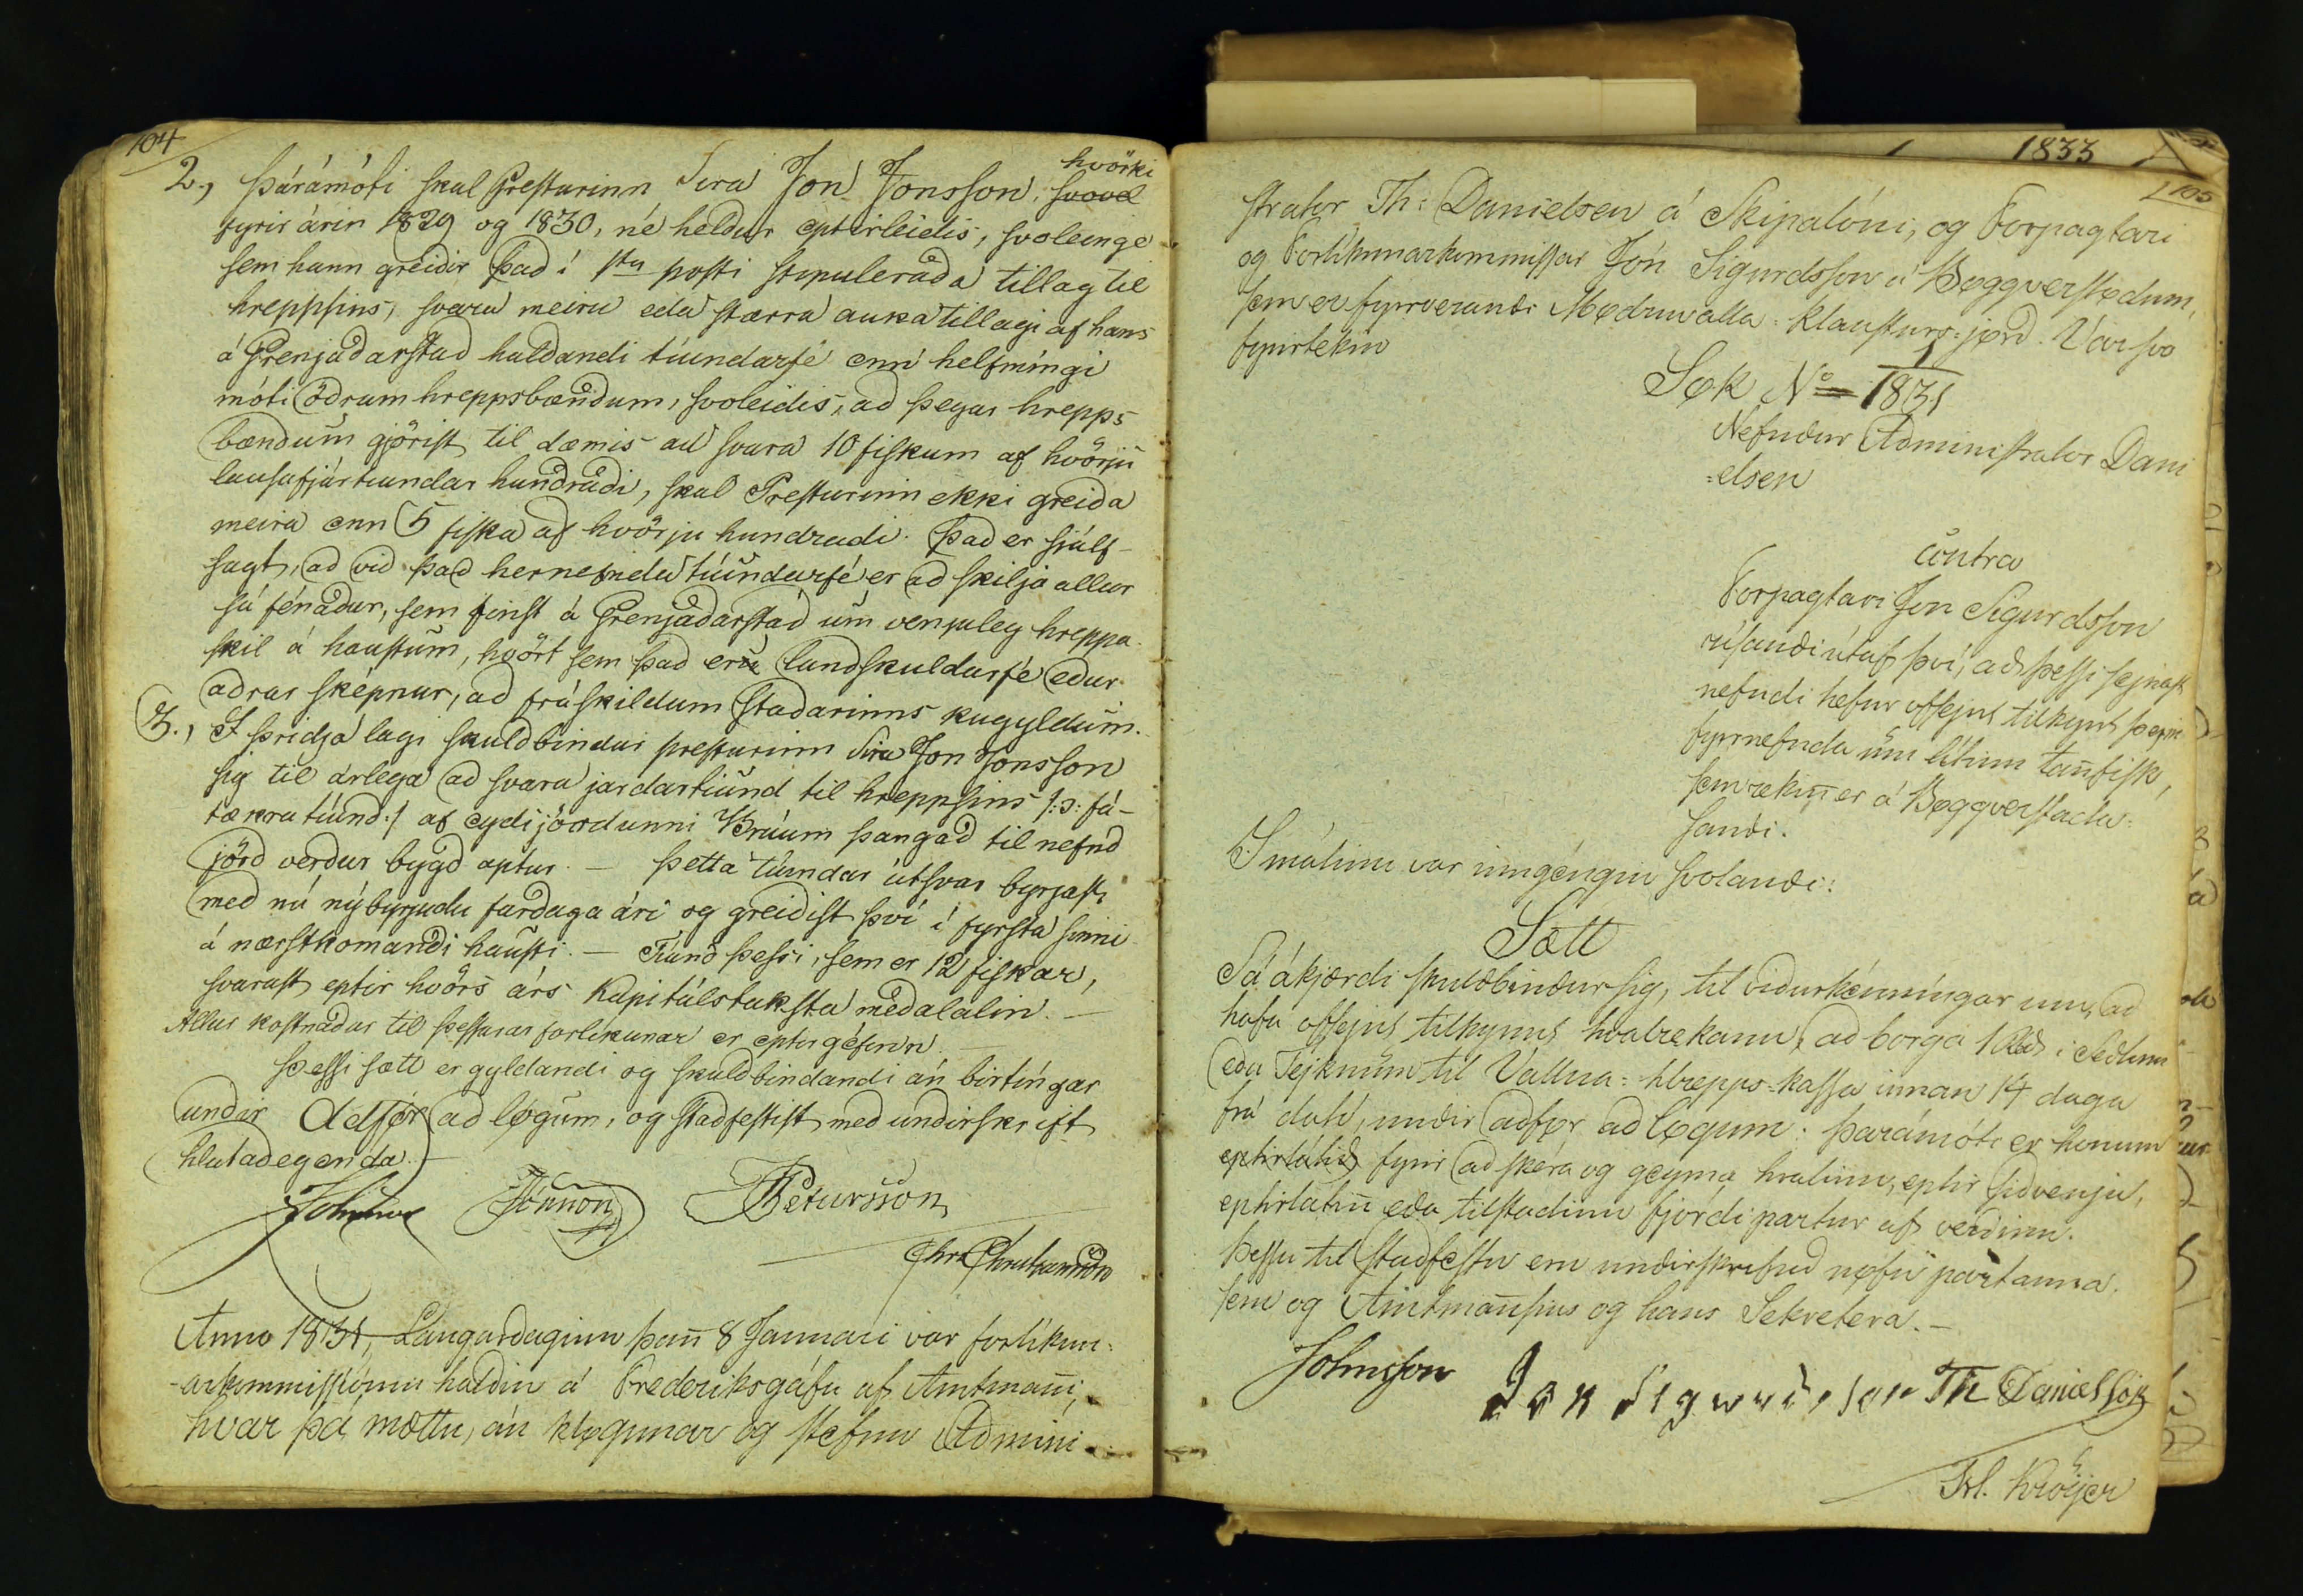 104
2., Þarámóti skal Presturinn Sira Jon Jonsson, hvörki svovel
fyrir árin 1829 og 1830, né heldur eptirleidis, svoleinge
sem hann greidir það í 1sta posti stipuleraða tillag til
hreppsins, svara meiru eda stærra aukatillagi af hans
á Grenjaðarstað haldandi tíundarfé enn helfmíngi
móti öðrum hreppsbændum, svoleidis, ad þegar hrepps
bændum gjörist til dæmis ad svara 10 fiskum af hvörju
lausafjártíundar hundraði, skal Presturinn ekki greida
meira enn 5 fiska af hvörju hundradi. Það er sjálf-
sagt, ad vid það hernefnda tíundarfé er ad skilja allur
sá fénadur, sem finst á Grenjaðarstað um venjuleg hreppa-
skil á haustum, hvört sem það eru landskuldarfé eður
adrar sképnur, ad fráskildum Staðarinns kugyldum.
3., I þridja lagi skuldbindur presturinn Sira Jon Jonsson
sig til árlega að svara jardartíund til hreppsins /:ɔ: fá-
tækra tíund:/ af eydijördunni Brúum þangað til nefnd
jörd verður bygd aptur. — Þetta tíundar útsvar byrjast
med nú nýbyrjudu fardaga ári og greidist því í fyrsta sinni
á næstkomandi hausti. — Tíund þessi, sem er 12 fiskar,
svarast eptir hvörs árs Kapitulstaksta meðalalin. —
Allur kostnadur til þessarar forlikunar er eptirgéfinn. —
Þessi sætt er gyldandi og skuldbindandi án birtíngar
undir Adför ad lögum, og stadfestist með undirskrift
hlutadegenda. —
Johnsson Jónsson Petursson
Chr. Christiansson
Anno 1831, Laugardaginn þan̄ 8 Januari var forlikun-
arkommissionin haldin á Frederiksgáfu af Amtman̄i,
hvar þá mættu, án kløgunar og stefnu Admini-
1833
105
strator Th: Danielsen á Skipalóni, og Forpagtari
og Forlikunarkommissar Jón Sigurdsson á Bøggverstødum,
sem er fyrrverandi Mødruvalla-klausturs-jørd. Var svo
fyrirtekin
Søk No 1/1831
Nefndur Administrator Dani
-elsen
contra
Forpagtari Jon Sigurdsson
rísandi útaf því, ad þessi sejnast
nefndi hefur ofsejnt tilkynt þeim
fyrrnefnda um lítinn tan̄fisk,
sem rekin̄ er á Bøggverstada-
sandi.
I málinu var inngéngin svolandi:
Sætt
Sá ákjærdi skuldbindur sig, til viðurkénníngar um, ad
hafa ofsejnt tilkynnt hvalrekann, ad borga 1 Rbd i Sedlum
eda Tejknum til Vallna-hrepps-kassa innan 14 daga
frá dato, undir adfør ad løgum: þarámóti er honum
eptirlátid fyrir ad skéra og geyma hvalinn, eptir sidvenju,
eptirlátin̄ eda tilstadinn fjórdi partur af verdinu.
Þessu til stadfestu eru undirskrifud nøfn partanna,
sem og Amtman̄sins og hans Sekretera. —
Johnsson Jon Sigurdsson Th Danielsson
Frl. Kröyer